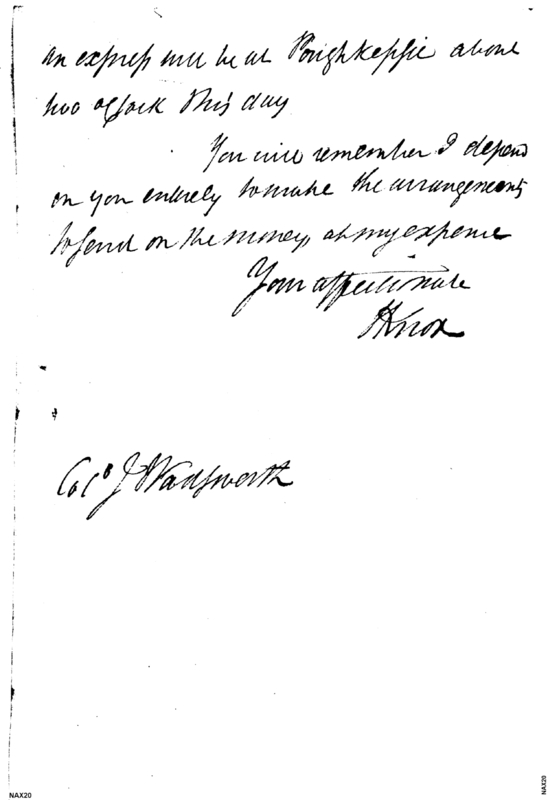 an express will be at Poughkeepsie about
two oClock this day
You will remember I depend
on you entirely to make the arrangements
to send on the money, at my expense
Your affectionate
HKnox
Colo J Wadsworth
NAX20
NAX20